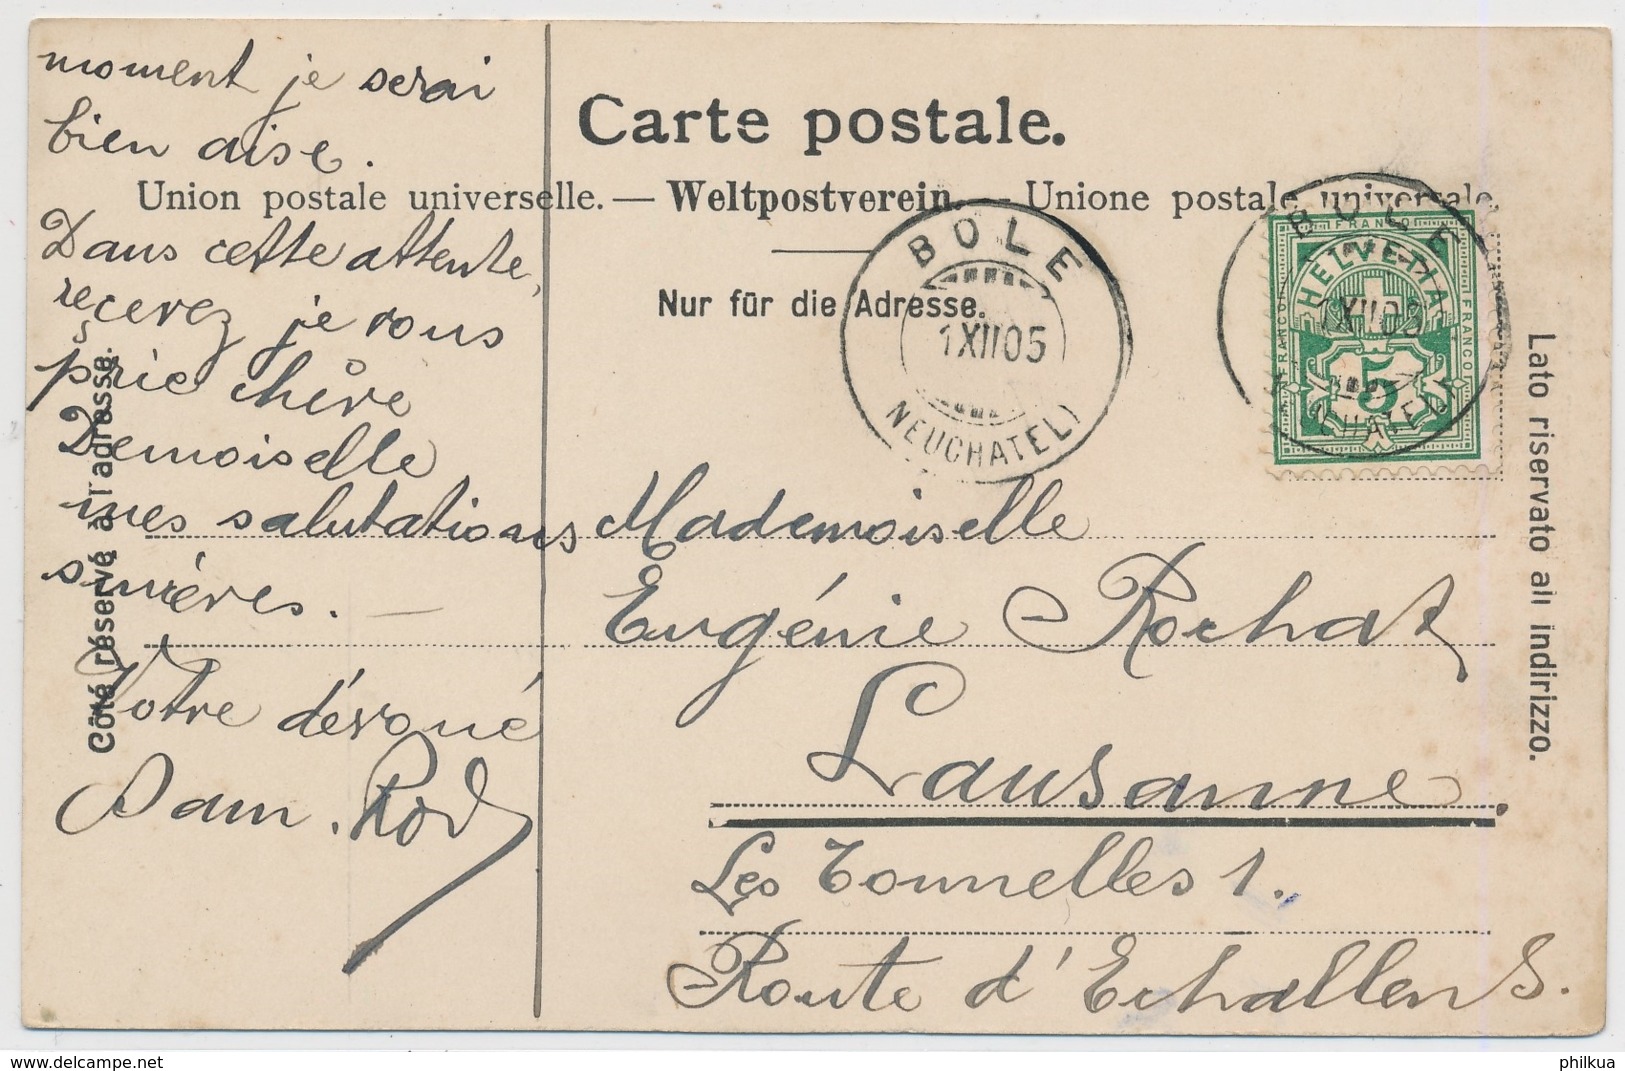 moment je serai
bien aise.
Dans cette attente,
recevez je vous
prie chère
Demoiselle
mes salutations
sincères. —
Votre dévoué
Sam. Rod
Carte postale.
Union postale universelle. — Weltpostverein. — Unione postale universale.
Nur für die Adresse.
Côté réservé à l'adresse.
Lato riservato all indirizzo.
BOLE
1 XII 05
(NEUCHATEL)
BOLE
1 XII 05
NEUCHATEL
FRANCO
HELVETIA
FRANCO
FRANCO
5
Mademoiselle
Eugénie Rochat
Lausanne.
Les Tonnelles 1.
Route d'Echallens.
delcampe.net
philkua